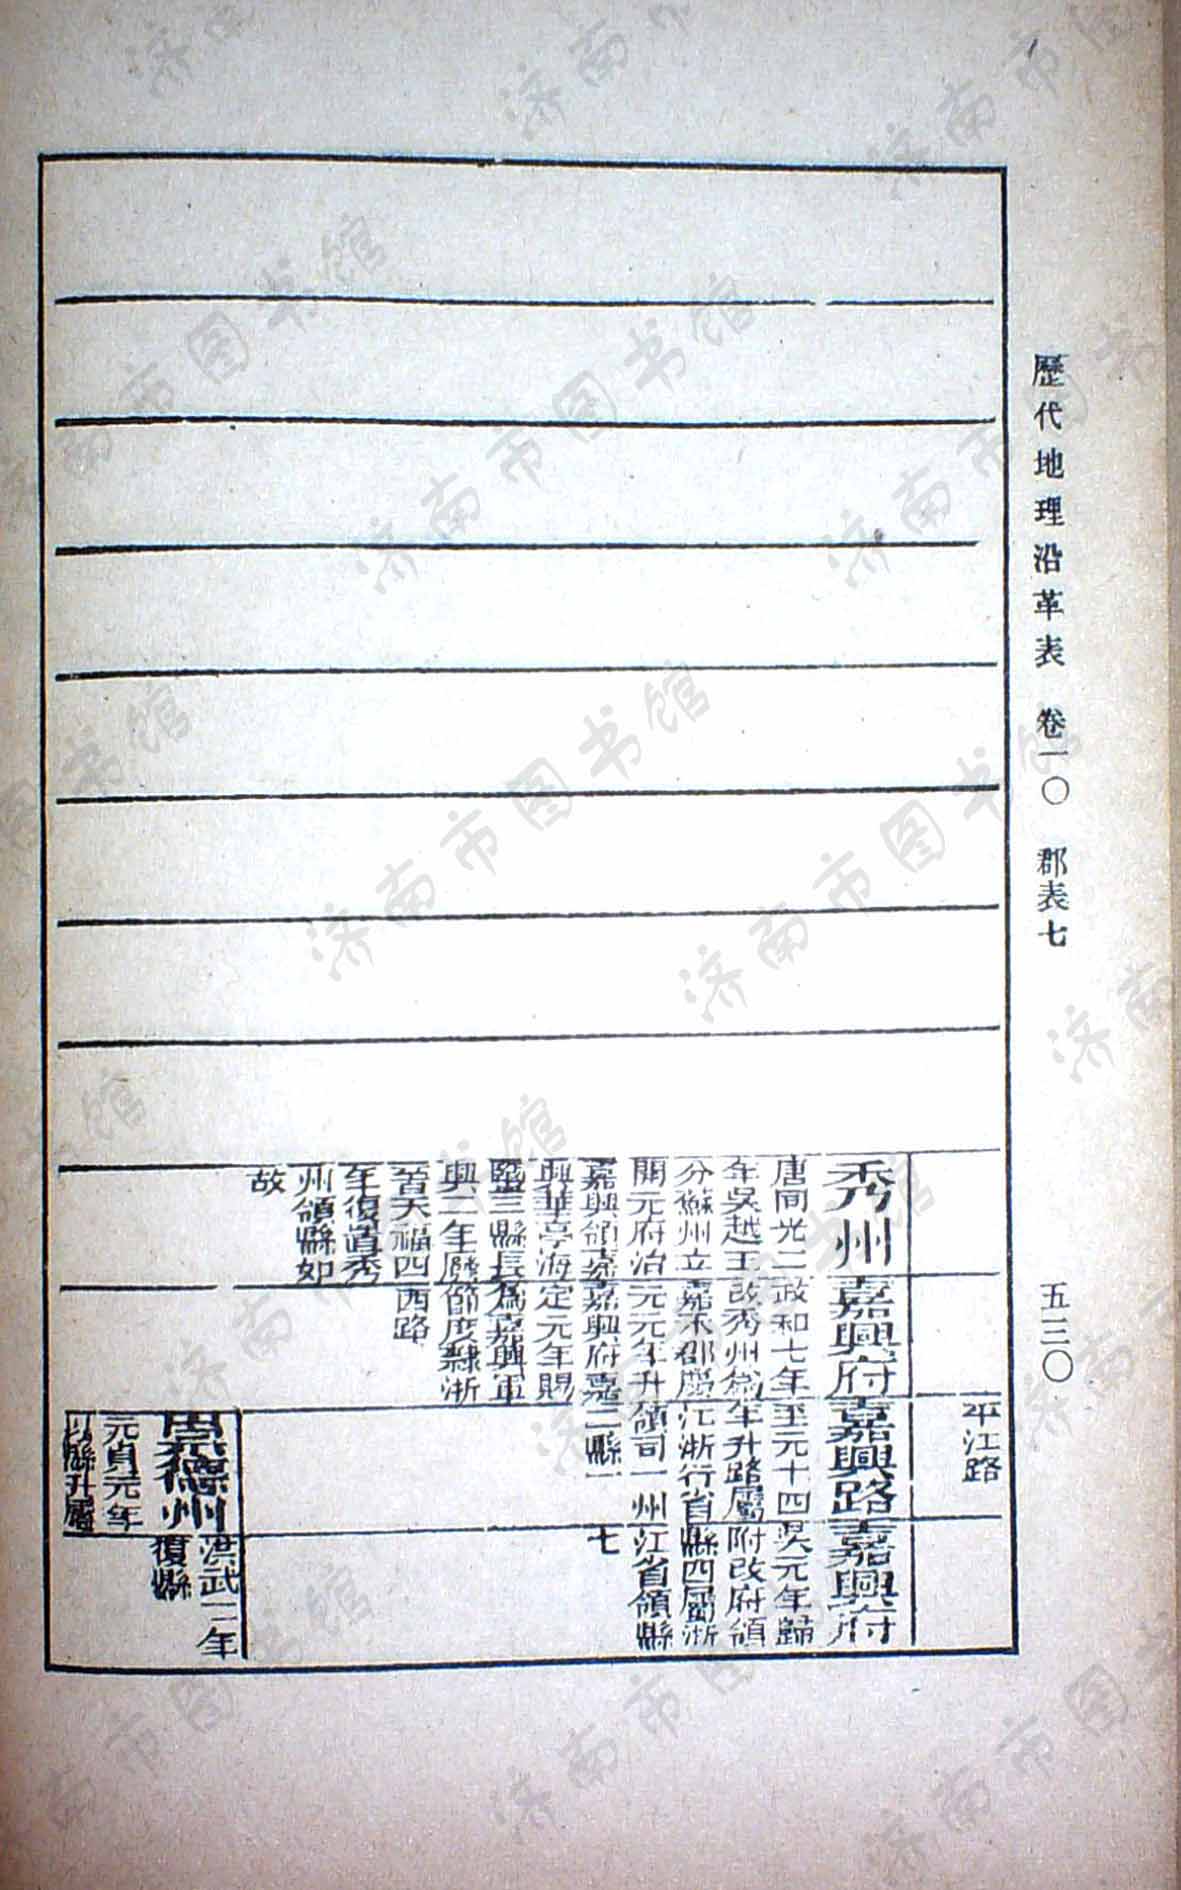 歷代地理沿革表 卷一〇 郡表七 五三〇
秀州
唐同光二
年吳越王
分蘇州立
開元府治
嘉興領嘉
興華亭海
鹽三縣長
興二年廢
晉天福四
年復置秀
州領縣如
故
嘉興府
政和七年
改秀州爲
嘉禾郡慶
元元年升
嘉興府嘉
定元年賜
爲嘉興軍
節度隸浙
西路
平江路
嘉興路
至元十四
年升路屬
江浙行省
領司一州
二縣一
崇德州
元貞元年
以縣升屬
嘉興府
吳元年歸
附改府領
縣四屬浙
江省領縣
七
洪武二年
復縣
济南市图书馆